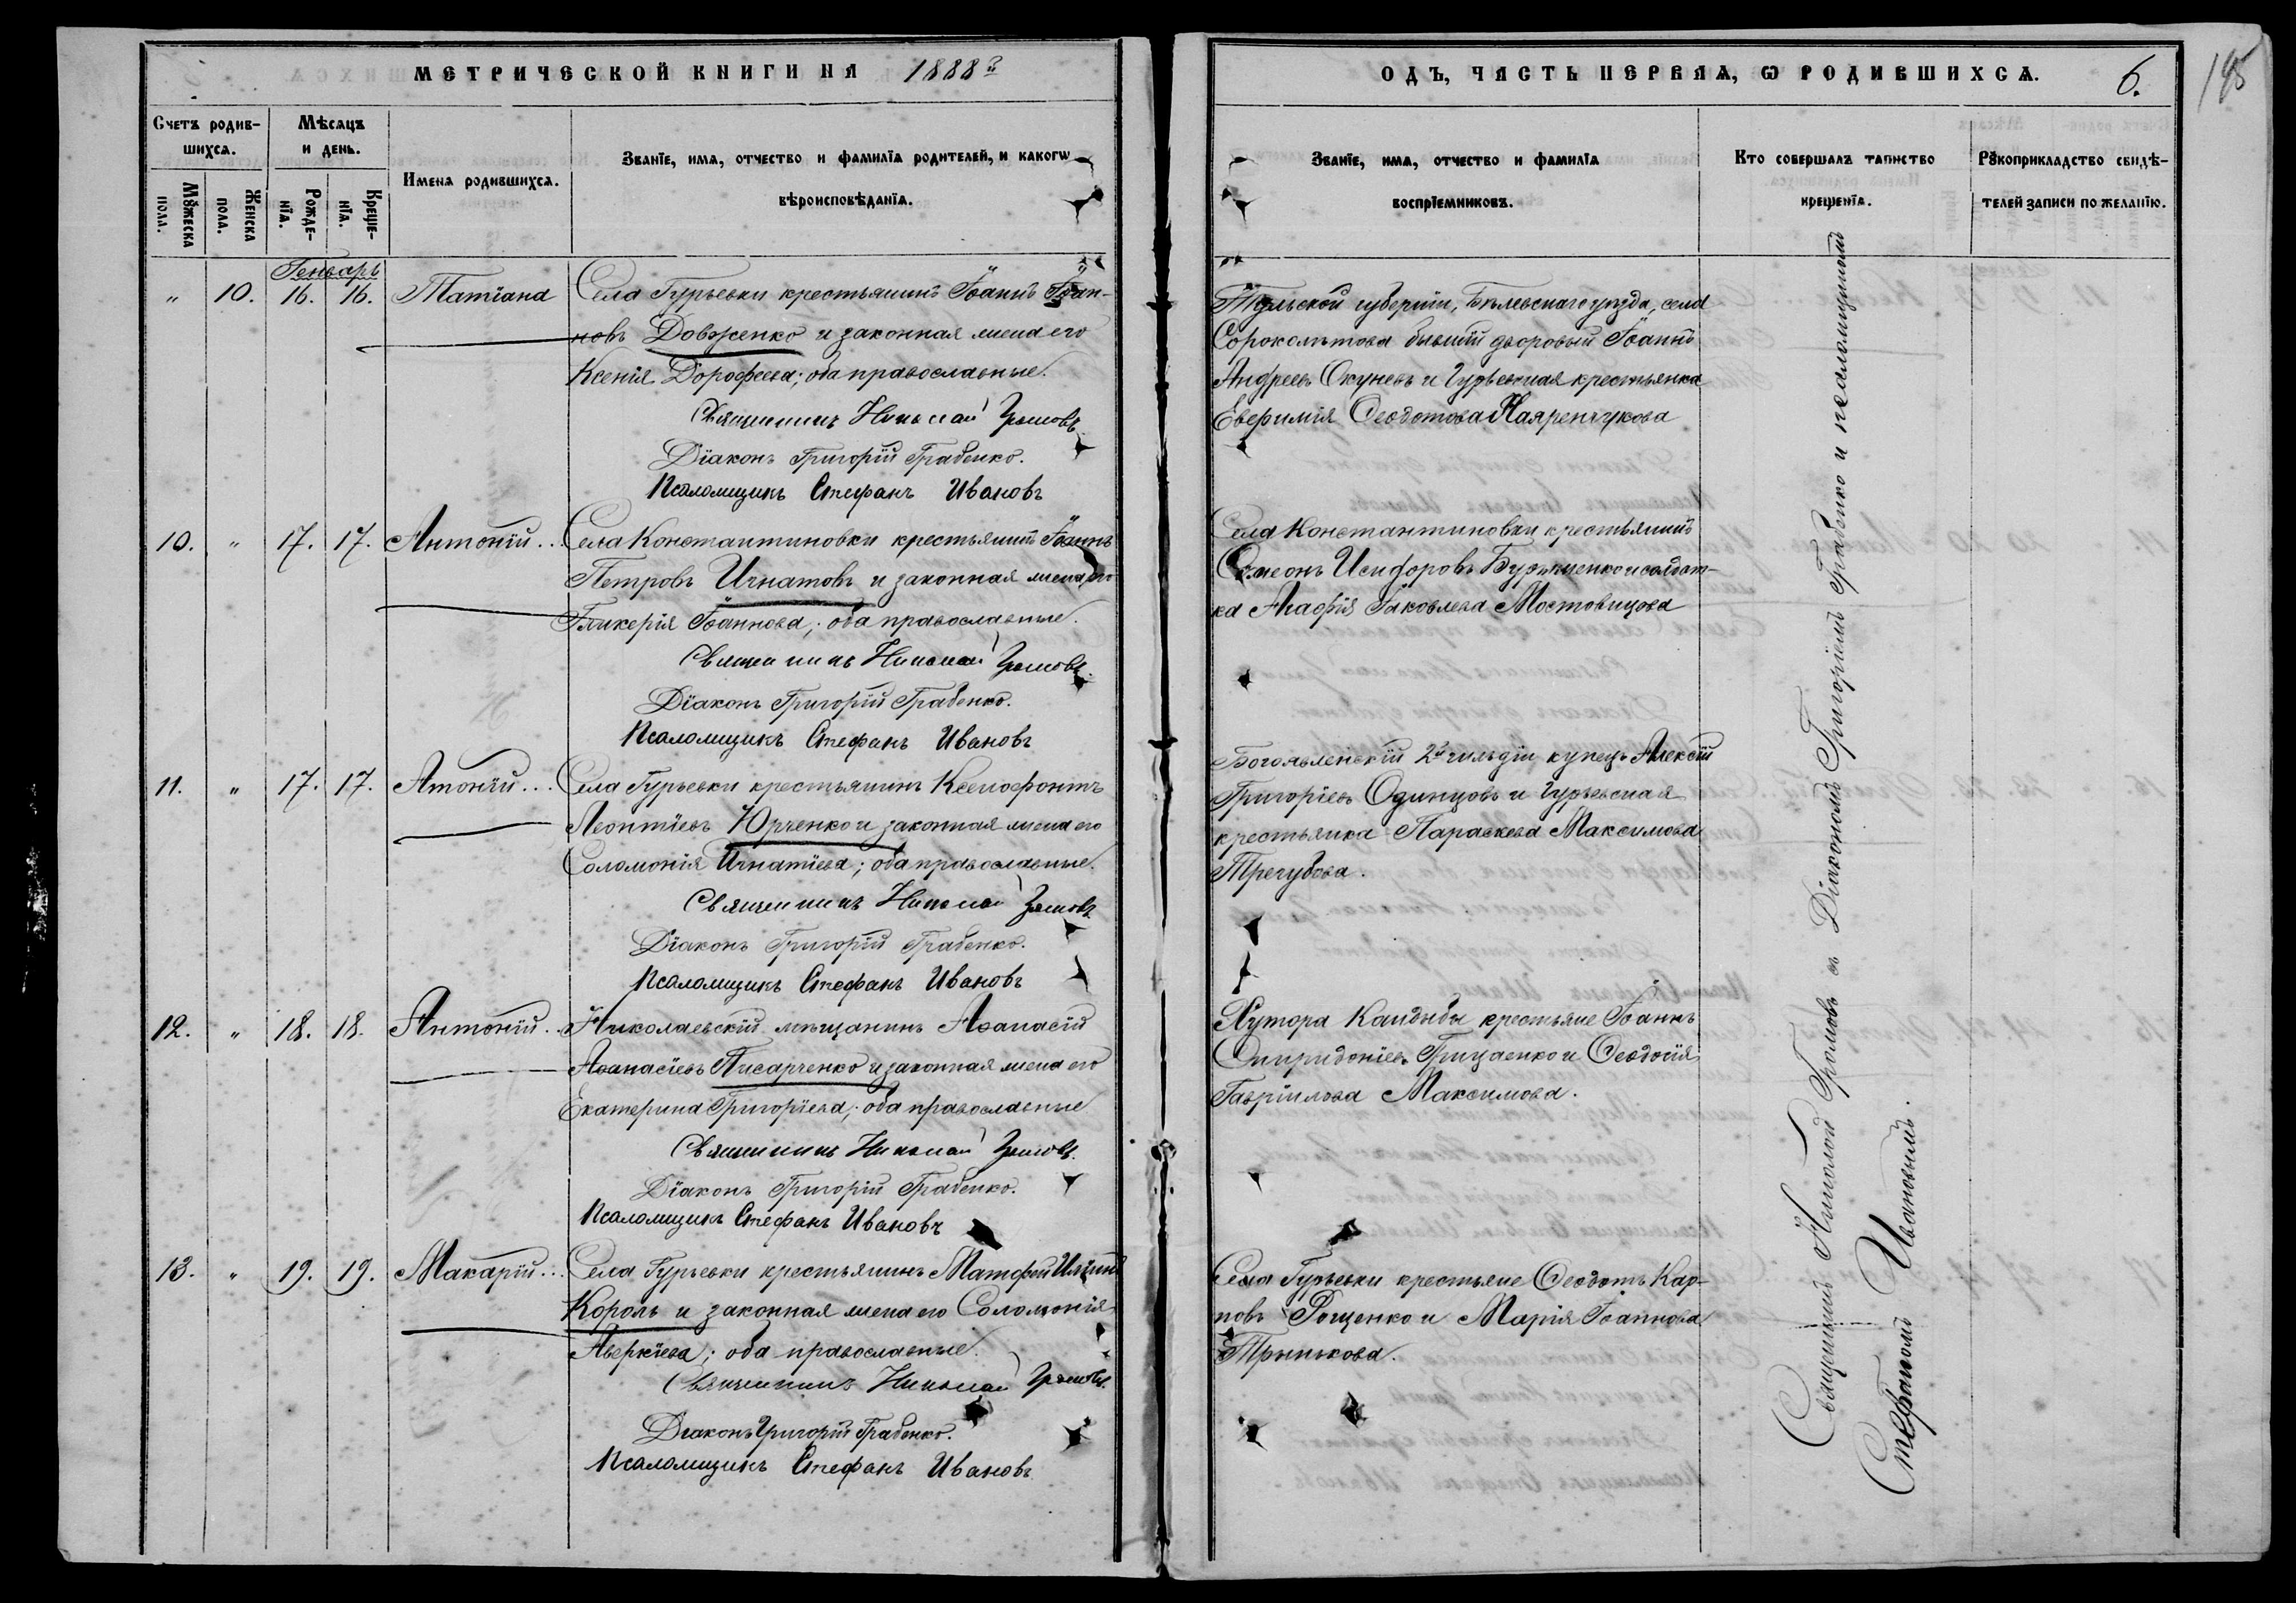 МЕТРИЧЕСКОЙ КНИГИ НА 1888 г
Счетъ родив-
шихся.
Мѣсяцъ
и день.
Имена родившихся.
Званїе, имя, отчество и фамилїя родителей, и какогѡ
вѣроисповѣданїя.
Мꙋжеска
пола.
Женска
пола.
Рожде-
нїя.
Креще-
нїя.
Генварь
" 10. 16. 16. Татіана Села Гурьевки крестьянинъ Іоаннъ Іоан-
новъ Довженко и законная жена его
Ксенія Дорофеева; оба православные.
Священникъ Николай Громовъ
Діаконъ Григорій Грабенко.
Псаломщикъ Стефанъ Ивановъ
10. " 17. 17. Антоній.. Села Константиновки крестьянинъ Іоаннъ
Петровъ Игнатовъ и законная жена его
Гликерія Іоаннова; оба православные.
Священникъ Николай Громовъ.
Діаконъ Григорій Грабенко.
Псаломщикъ Стефанъ Ивановъ
11. " 17. 17. Атоній... Села Гурьевки крестьянинъ Ксенофонтъ
Леонтіевъ Юрченко и законная жена его
Соломонія Игнатіева; оба православные.
Священникъ Николай Громовъ
Діаконъ Григорій Грабенко.
Псаломщикъ Стефанъ Ивановъ
12. " 18. 18. Антоній.. Николаевскій мѣщанинъ Аѳанасій
Аѳанасіевъ Писарченко и законная жена его
Екатерина Григоріева; оба православные
Священникъ Николай Громовъ.
Діаконъ Григорій Грабенко.
Псаломщикъ Стефанъ Ивановъ
13. " 19. 19. Макарій... Села Гурьевки крестьянинъ Матфей Ильинъ
Король и законная жена его Соломонія
Аверкіева; оба православные.
Священникъ Николай Громовъ.
Діаконъ Григорій Грабенко.
Псаломщикъ Стефанъ Ивановъ
ОДЪ, ЧАСТЬ ПЕРВАѦ, Ѡ РОДИВШИХСѦ. 6.
195
Званїе, имя, отчество и фамилїя
воспрїемниковъ.
Кто совершалъ таинство
крещенїя.
Рꙋкоприкладство свидѣ-
телей записи по желанїю.
Тульской губерніи, Бѣлевскаго уѣзда, села
Сороколѣтова бывшій дворовый Іоаннъ
Андреевъ Окуневъ и Гурьевская крестьянка
Евфимія Ѳеодотова
Села Константиновки крестьянинъ
Симеонъ Исидоровъ и солдат-
ка Агафія Іаковлева Мостовицова
Богоявленскій 2й гильдіи купецъ Алексій
Григоріевъ Одинцовъ и Гурьевская
крестьянка Параскева Максимова
Трегубова.
Хутора Кандыбы крестьяне Іоаннъ
Спиридоніевъ Грицаенко и Ѳеодосія
Гавріилова Максимова.
Села Гурьевки крестьяне Ѳеодотъ Кар-
повъ Рощенко и Марія Іоаннова
Трынькова.
Священникъ Николай Громовъ съ Діакономъ Григоріемъ Грабенко и псаломщикомъ
Стефаномъ Ивановымъ.